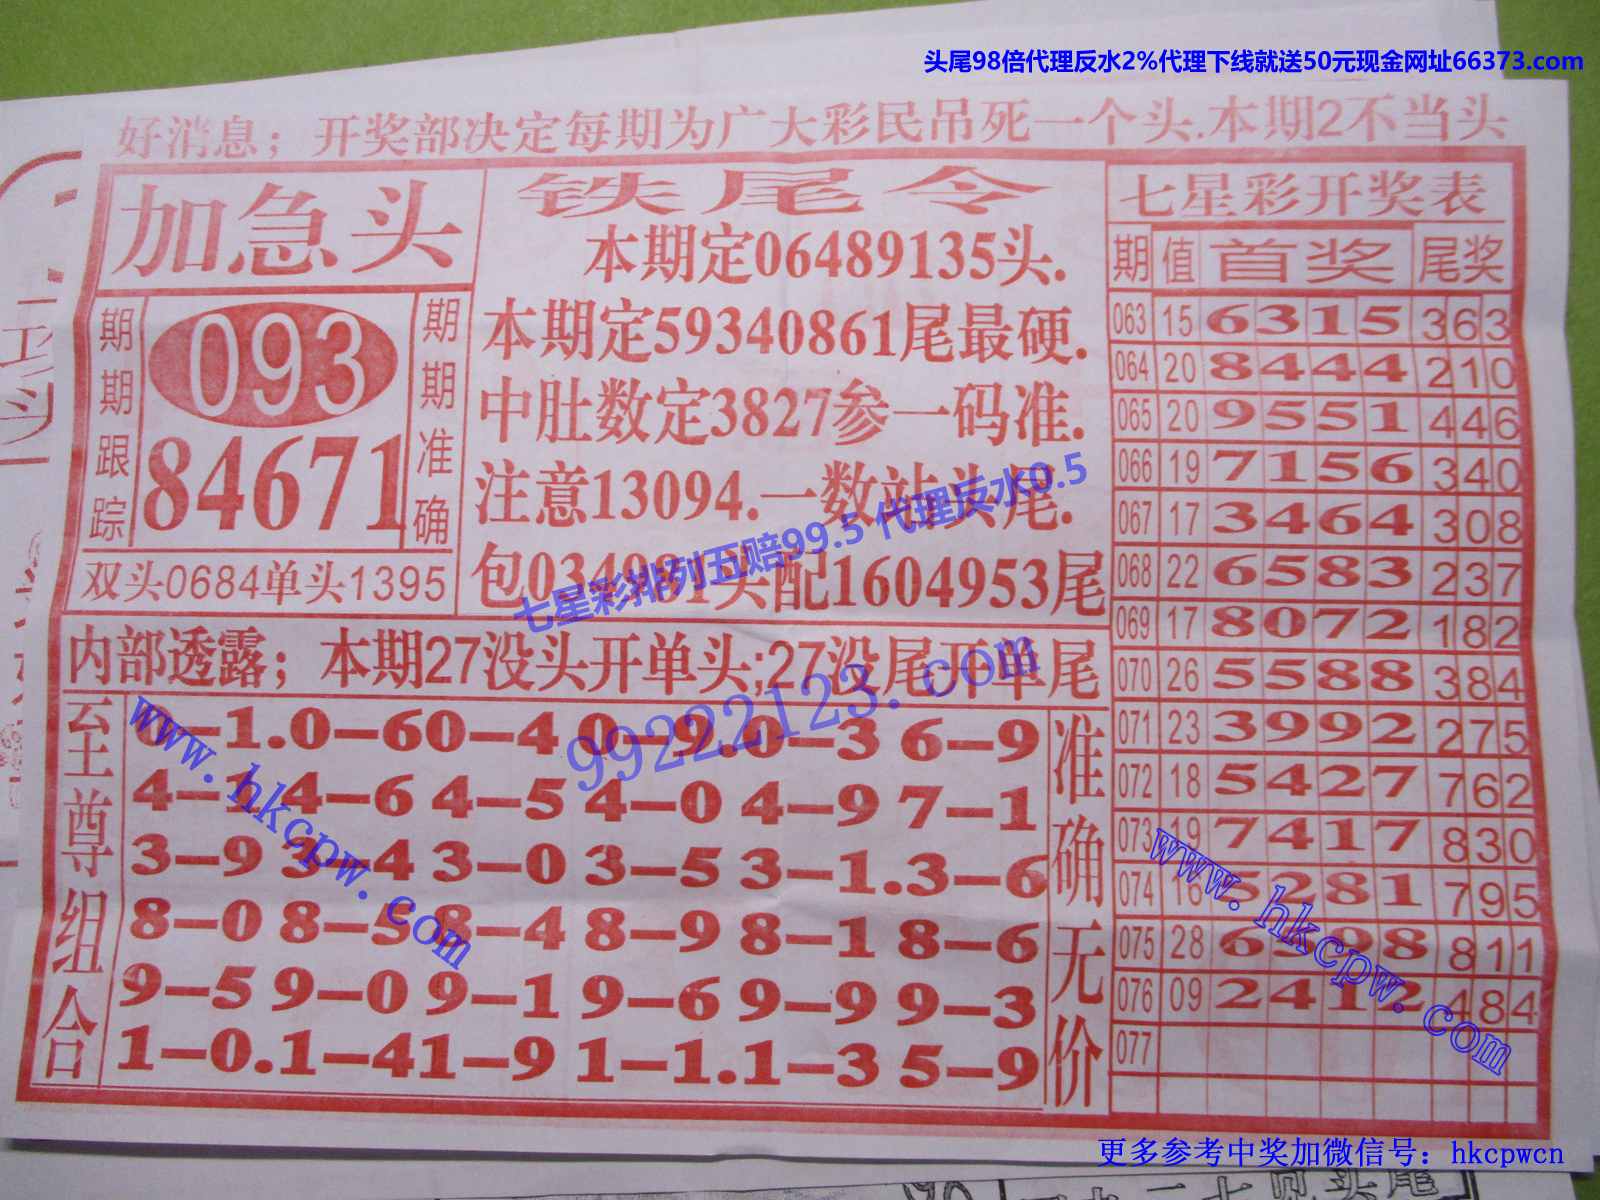 头尾98倍代理反水2%代理下线就送50元现金网址66373.com
好消息；开奖部决定每期为广大彩民吊死一个头.本期2不当头
加急头
期期跟踪
093
84671
期期准确
双头0684单头1395
铁尾令
本期定06489135头.
本期定59340861尾最硬.
中肚数定3827参一码准.
注意13094.一数站头尾.
七星彩排列五赔99.5 代理反水0.5
配1604953尾
内部透露；本期27没头开单头;27没尾开单尾
99222123.com
至尊组合
0–1.0–60–4 0–9.0–3 6–9
4–1 4–6 4–5 4–0 4–9 7–1
3–9 3–4 3–0 3–5 3–1.3–6
8–0 8–5 8–4 8–9 8–1 8–6
9–5 9–0 9–1 9–6 9–9 9–3
1–0.1–41–9 1–1.1–3 5–9
准确无价
www.hkcpw.com
七星彩开奖表
期 值 首奖 尾奖
063 15 6315 363
064 20 8444 210
065 20 9551 446
066 19 7156 340
067 17 3464 308
068 22 6583 237
069 17 8072 182
070 26 5588 384
071 23 3992 275
072 18 5427 762
073 19 7417 830
074 16 5281 795
075 28 811
076 09 2412 484
077
www.hkcpw.com
更多参考中奖加微信号：hkcpwcn